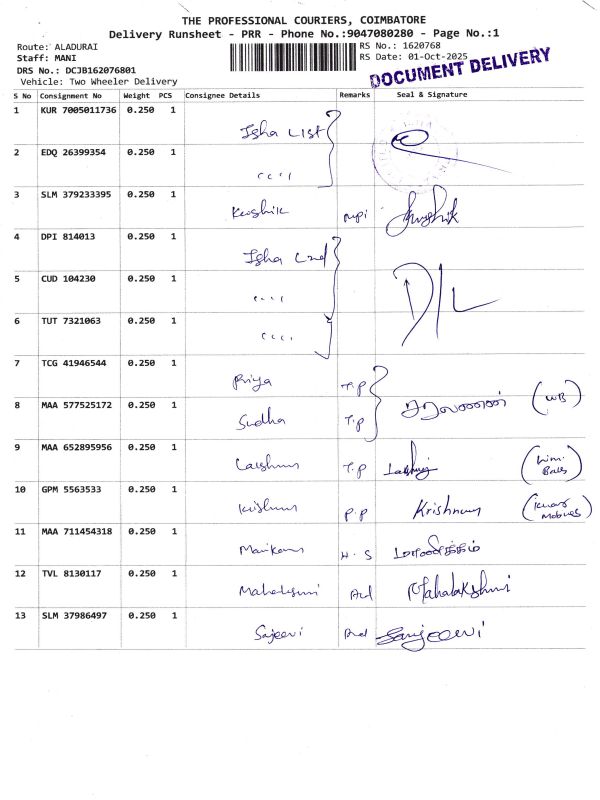 THE PROFESSIONAL COURIERS, COIMBATORE
Delivery Runsheet - PRR - Phone No.:9047080280 - Page No.:1
Route: ALADURAI RS No.: 1620768
Staff: MANI RS Date: 01-Oct-2025
DRS No.: DCJB162076801
Vehicle: Two Wheeler Delivery
DOCUMENT DELIVERY
S No Consignment No Weight PCS Consignee Details Remarks Seal & Signature
1 KUR 7005011736 0.250 1 Isha List
2 EDQ 26399354 0.250 1 " "
3 SLM 379233395 0.250 1 Koshik
4 DPI 814013 0.250 1 Isha D/L
5 CUD 104230 0.250 1 " "
6 TUT 7321063 0.250 1 " "
7 TCG 41946544 0.250 1 Priya T.P
8 MAA 577525172 0.250 1 Sudha T.P சரவணன் (WB)
9 MAA 652895956 0.250 1 T.P
10 GPM 5563533 0.250 1 Krishnan P.P Krishnan
11 MAA 711454318 0.250 1 H.S மாணிக்கம்
12 TVL 8130117 0.250 1 Mahalakshmi
13 SLM 37986497 0.250 1 Sajeevi Sanjeevi